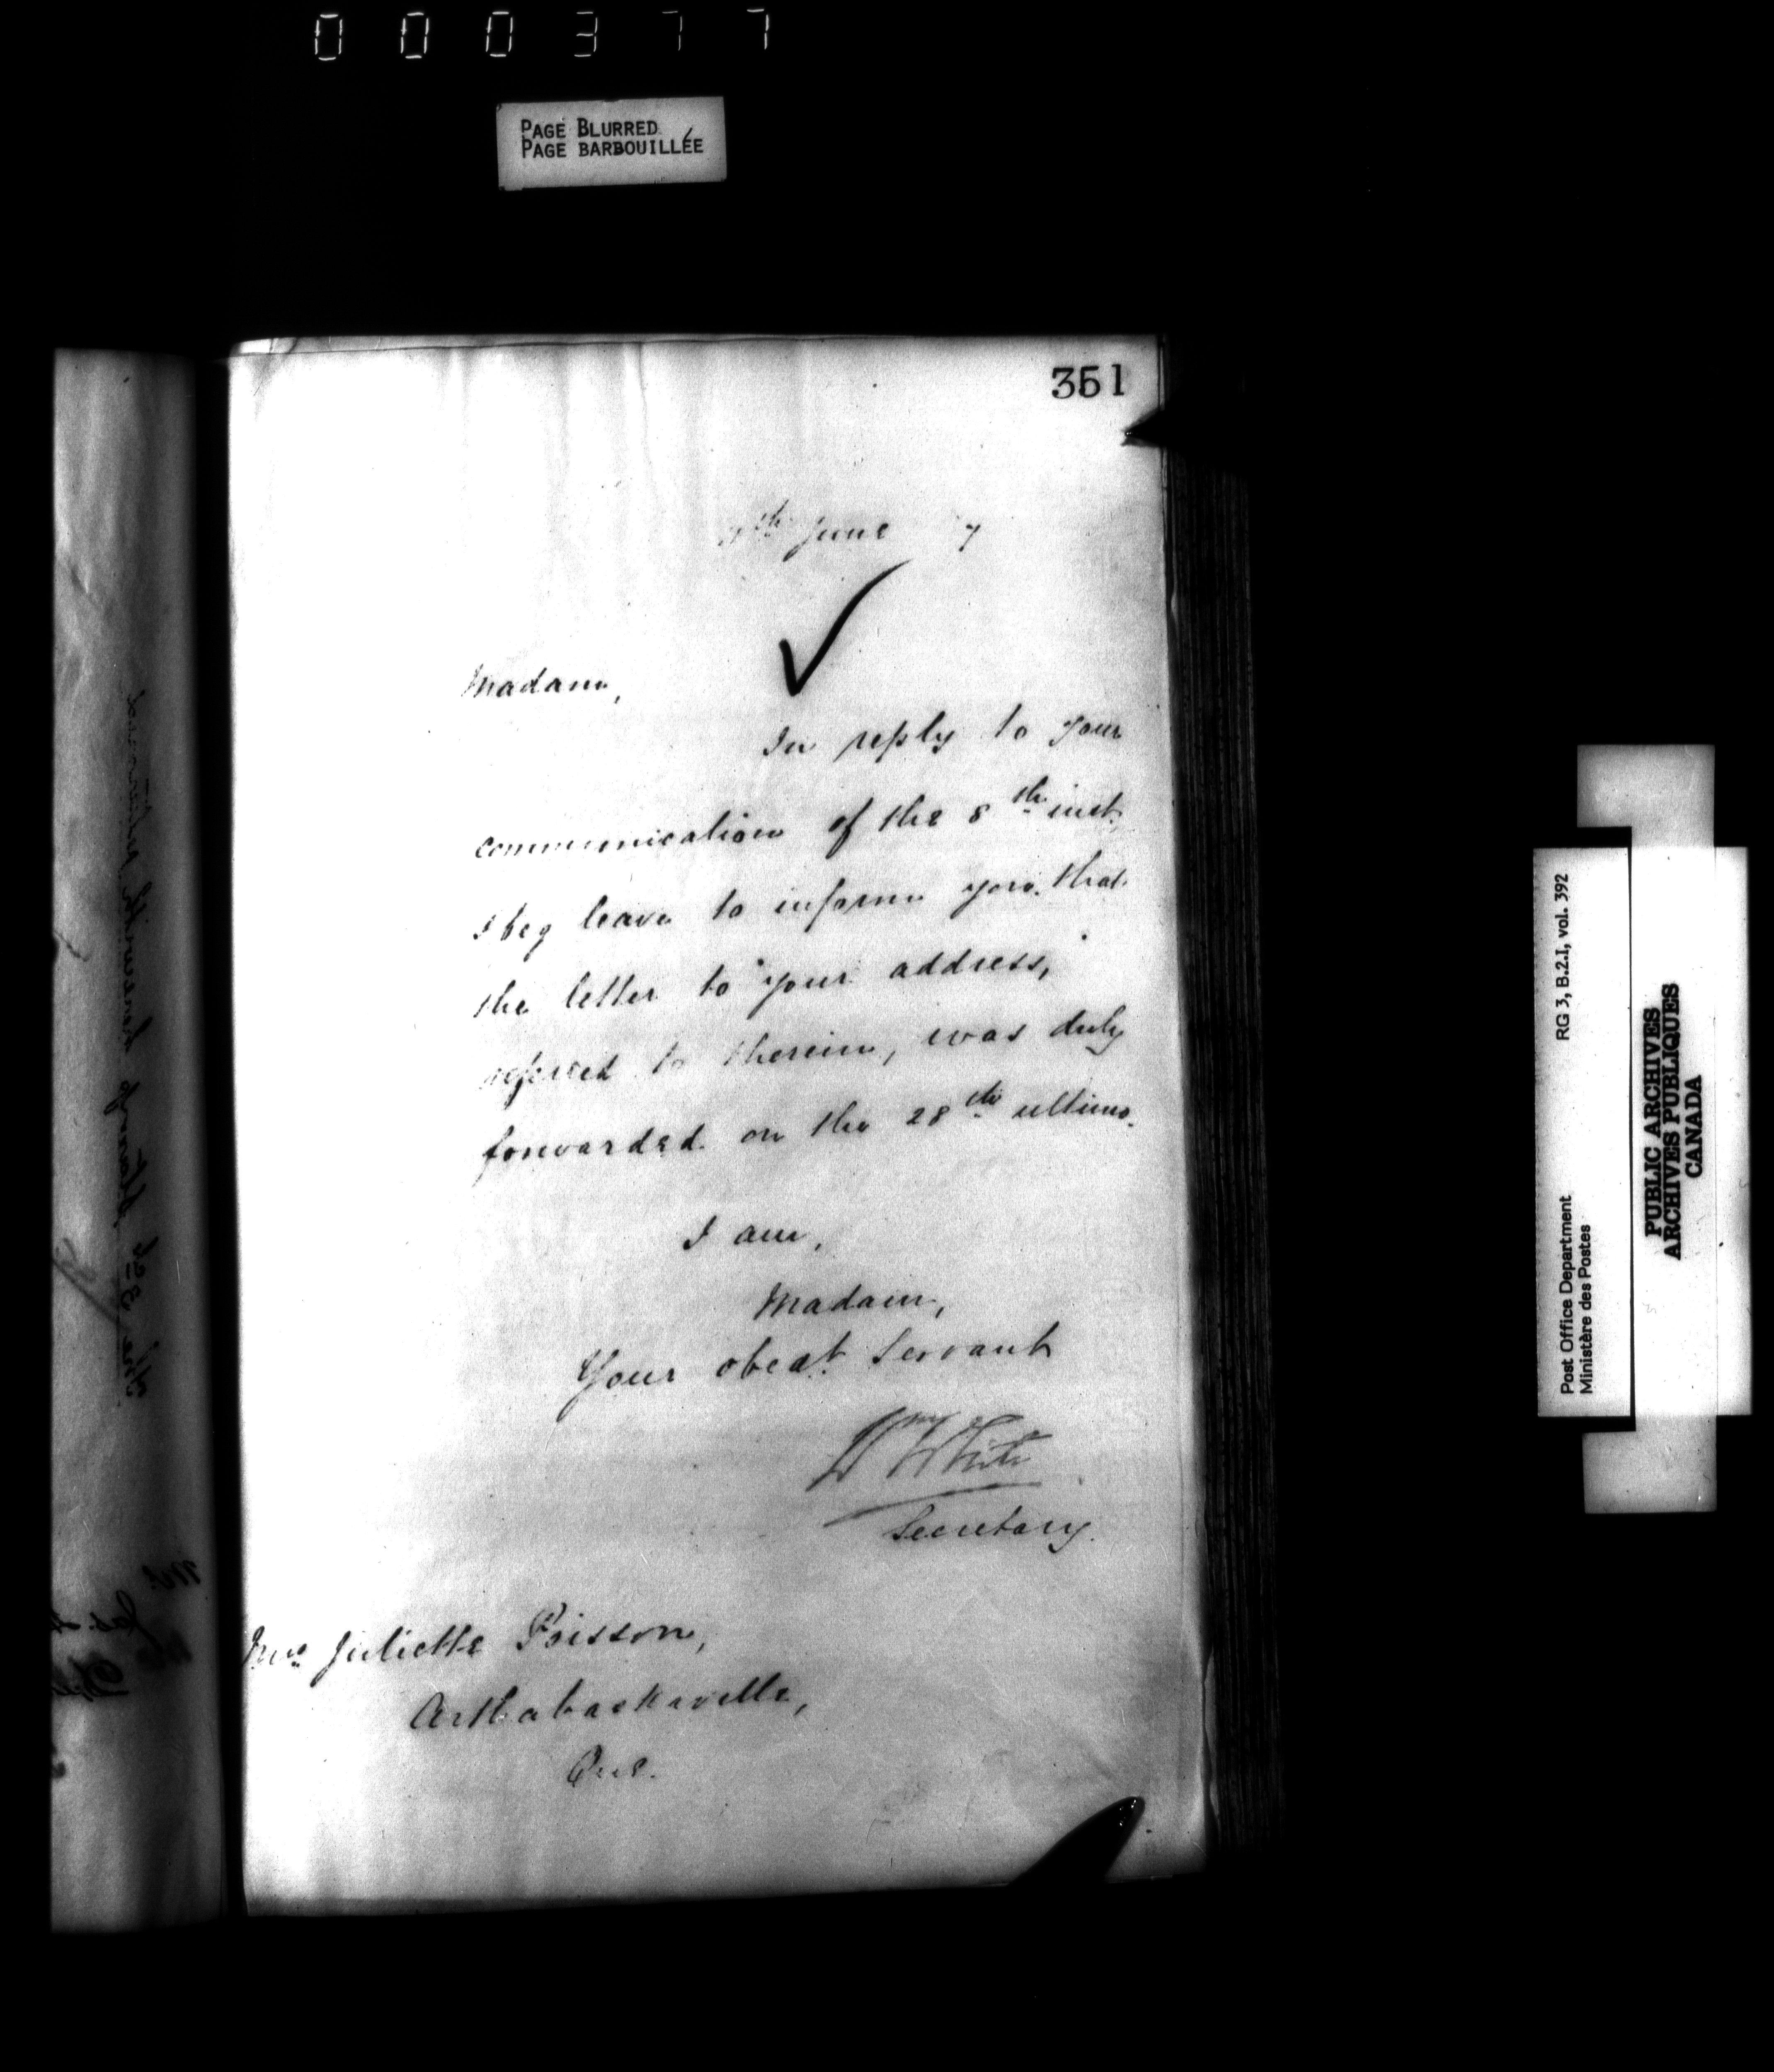 000377
PAGE BLURRED
PAGE BARBOUILLÉE
351
June 7
Madam,
In reply to your
communication of the 8th inst.
I beg leave to inform you that
the letter to your address,
referred to therein, was duly
forwarded on the 28th ultimo.
I am,
Madam,
Your obedt. Servant
Wm White
Secretary.
Mrs. Juliette Poisson,
Arthabaskaville,
Que.
Post Office Department RG 3, B.2.1, vol. 392
Ministère des Postes
PUBLIC ARCHIVES
ARCHIVES PUBLIQUES
CANADA